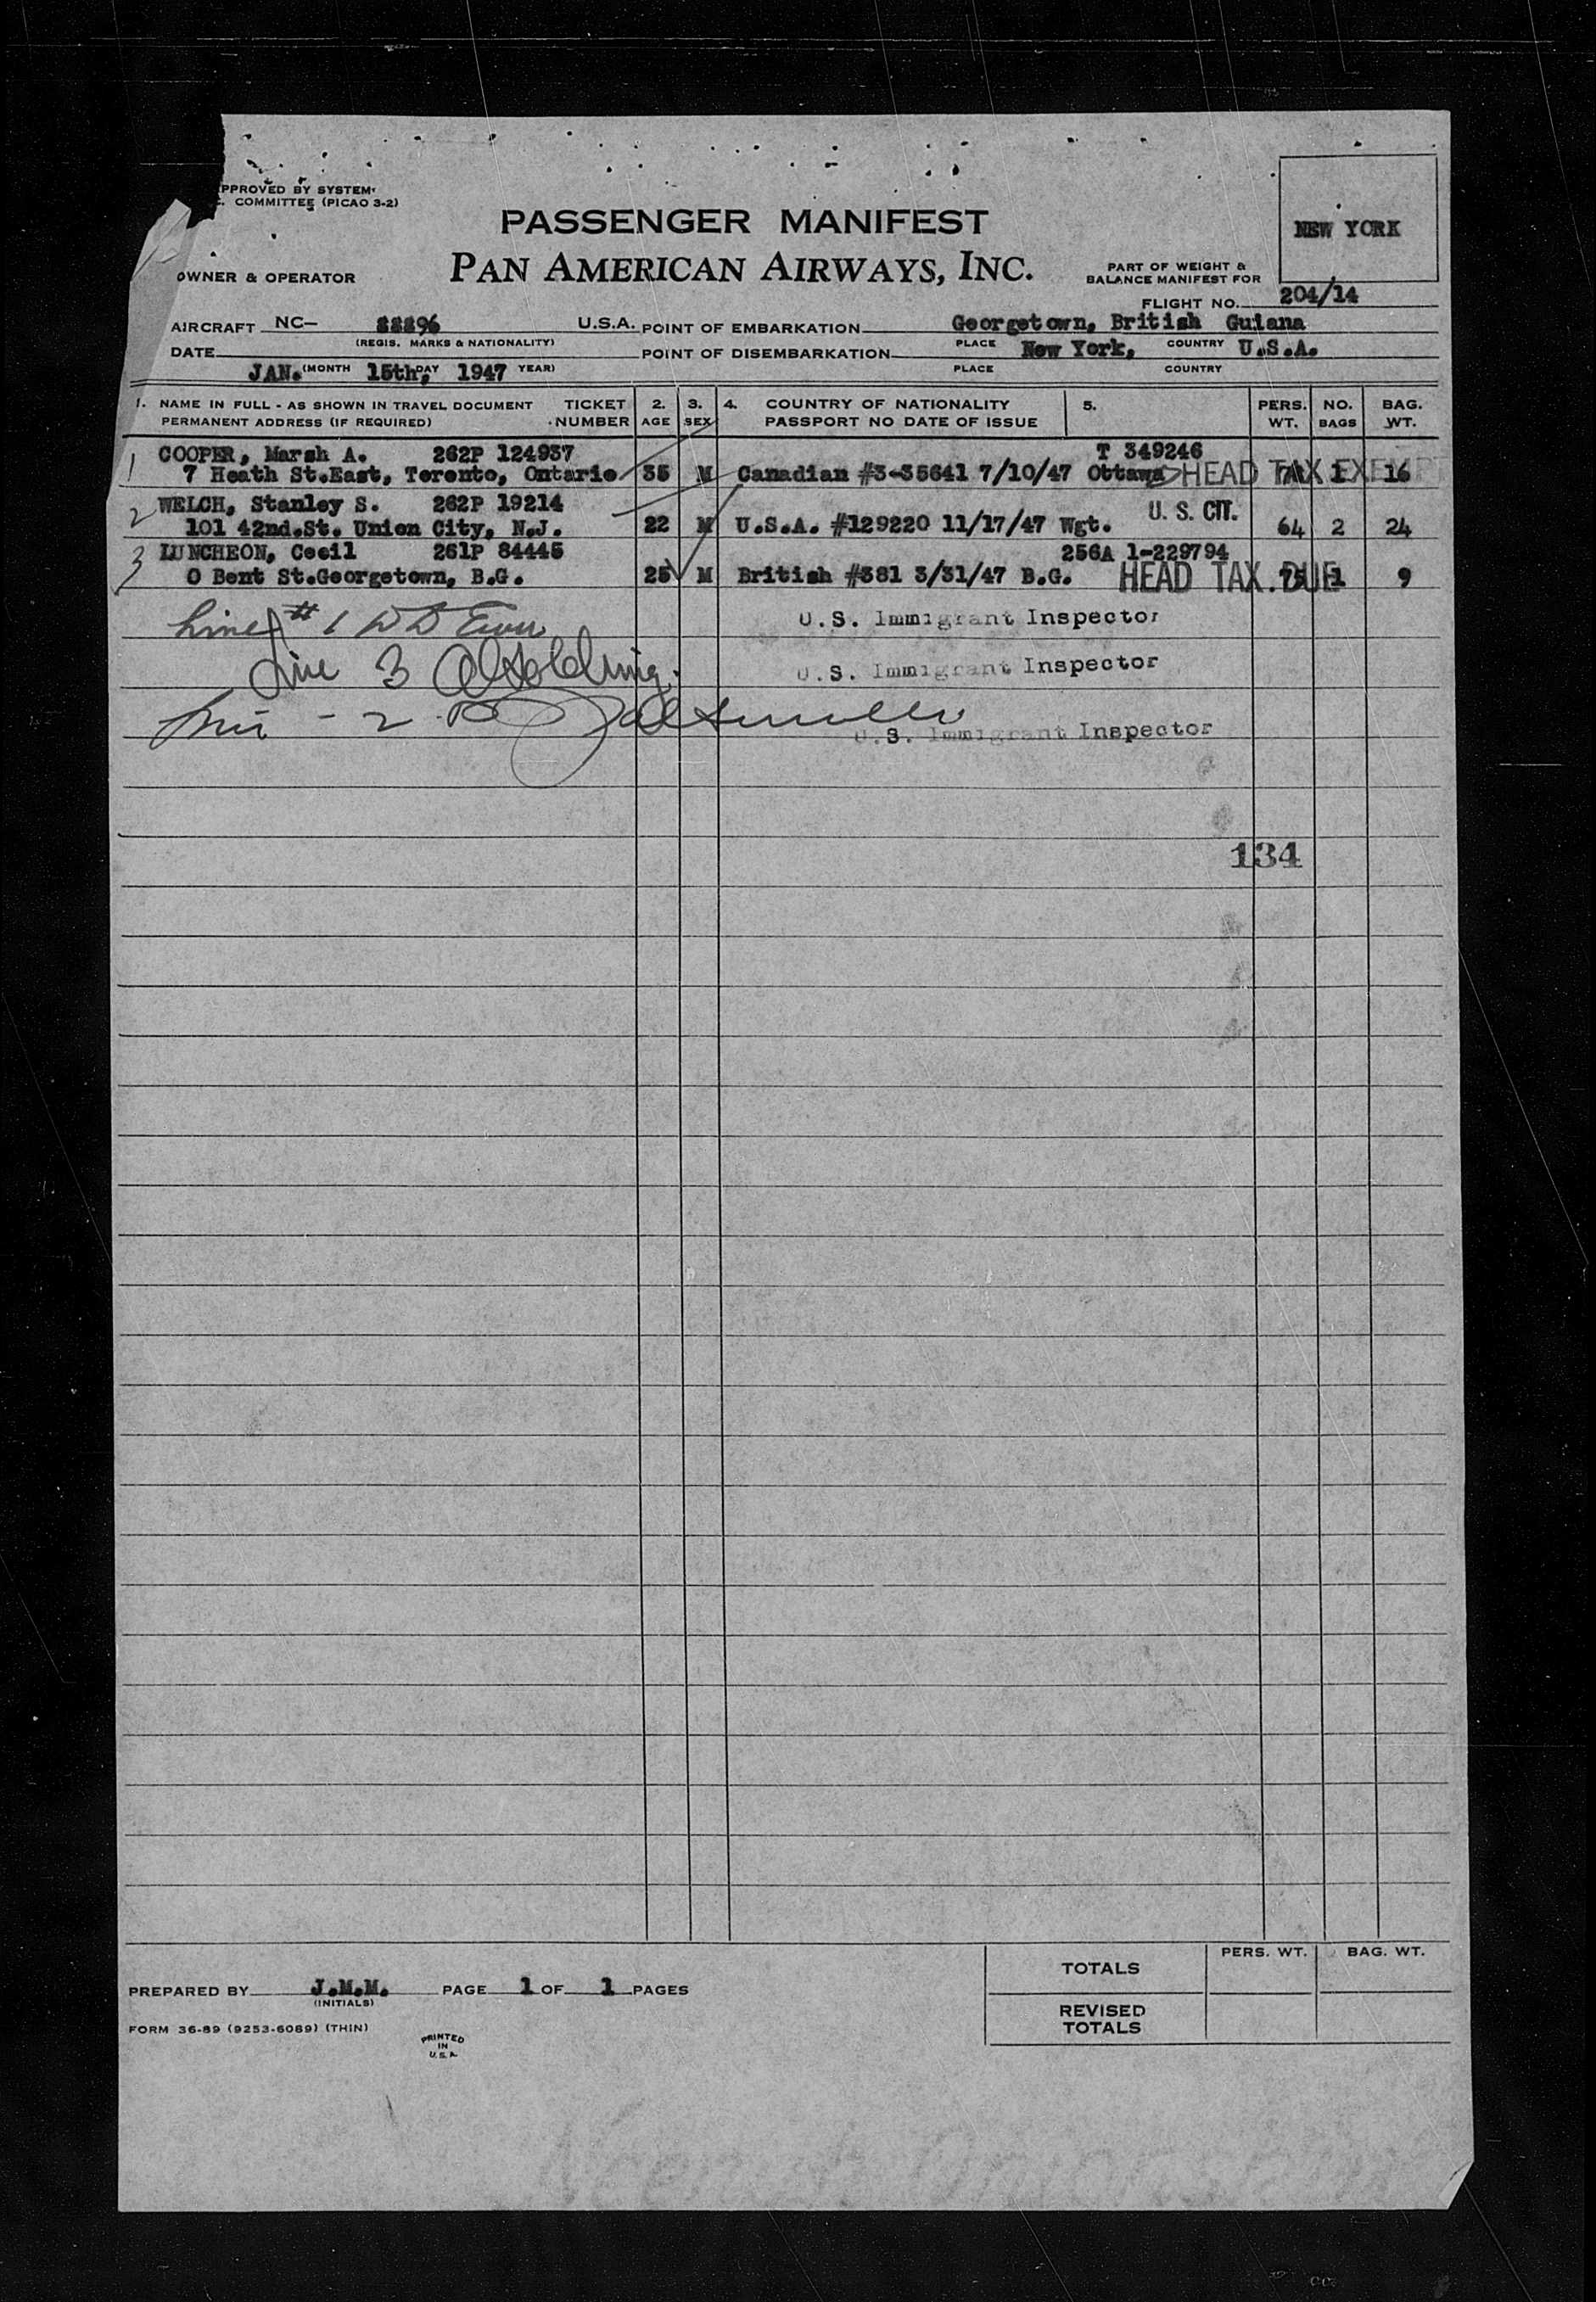 PPROVED BY SYSTEM
COMMITTEE (PICAO 3-2)
PASSENGER MANIFEST
PAN AMERICAN AIRWAYS, INC.
NEW YORK
OWNER & OPERATOR
PART OF WEIGHT &
BALANCE MANIFEST FOR
FLIGHT NO. 204/14
AIRCRAFT NC- 88896 U.S.A. POINT OF EMBARKATION Georgetown, British Guiana
(REGIS. MARKS & NATIONALITY) PLACE COUNTRY
DATE POINT OF DISEMBARKATION New York, U.S.A.
JAN. (MONTH 15th, DAY 1947 YEAR) PLACE COUNTRY
1. NAME IN FULL - AS SHOWN IN TRAVEL DOCUMENT TICKET 2. 3. 4. COUNTRY OF NATIONALITY 5. PERS. NO. BAG.
PERMANENT ADDRESS (IF REQUIRED) NUMBER AGE SEX PASSPORT NO DATE OF ISSUE WT. BAGS WT.
COOPER, Marsh A. 262P 124937 T 349246
1 7 Heath St.East, Toronto, Ontario 35 M Canadian #3-35641 7/10/47 Ottawa HEAD TAX EXEMPT 1 16
2 WELCH, Stanley S. 262P 19214 U. S. CIT.
101 42nd.St. Union City, N.J. 22 M U.S.A. #129220 11/17/47 Wgt. 64 2 24
3 LUNCHEON, Cecil 261P 84445 256A 1-229794
0 Bent St.Georgetown, B.G. 25 M British #381 3/31/47 B.G. HEAD TAX DUE 75 1 9
Line # 1 U.S. Immigrant Inspector
Line 3 U.S. Immigrant Inspector
Line - 2
U.S. Immigrant Inspector
134
PERS. WT. BAG. WT.
TOTALS
PREPARED BY J.M.M. PAGE 1 OF 1 PAGES
(INITIALS)
REVISED
TOTALS
FORM 36-89 (9253-6089) (THIN)
PRINTED
IN
U.S.A.